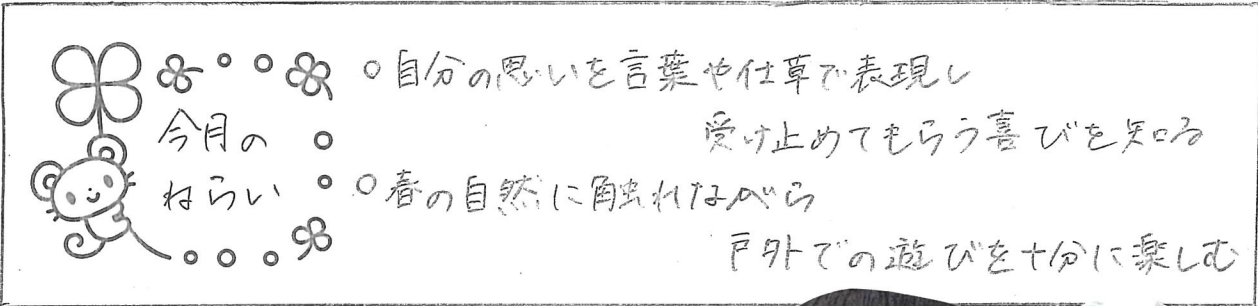 今月の
ねらい
○自分の思いを言葉や仕草で表現し
受け止めてもらう喜びを知る
○春の自然に触れながら
戸外での遊びを十分に楽しむ